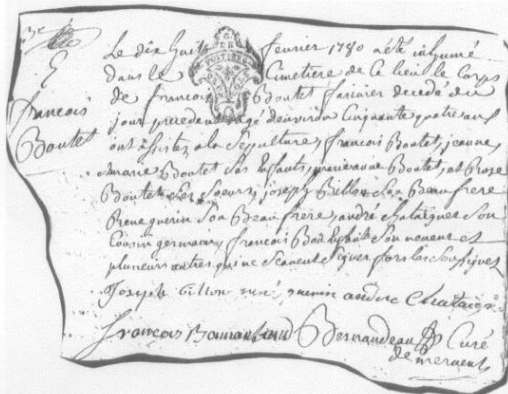 E
francois
Boutet
Le dix huit fevrier 1780 a été inhumé
dans le Cimetiere de Ce lieu le Corps
de francois Boutet farinier decedé du
jour precedent agé denviron Cinquante quatre ans
ont assistez a la Sepulture, francois Boutet, jeanne,
marie Boutet Ses Enfants, marianne Boutet, et Roze
Boutet Ses Soeurs, joseph Billon Son Beau frere
Rene guerin Son Beau frere, andre Chataigner Son
Cousin germain, francois Son neveu et
plusieurs autres qui ne Scavent Signer fors les Soussignes
Joseph Billon rené guerin andre Chataigné
françois Bernaudeau Curé
de mervent